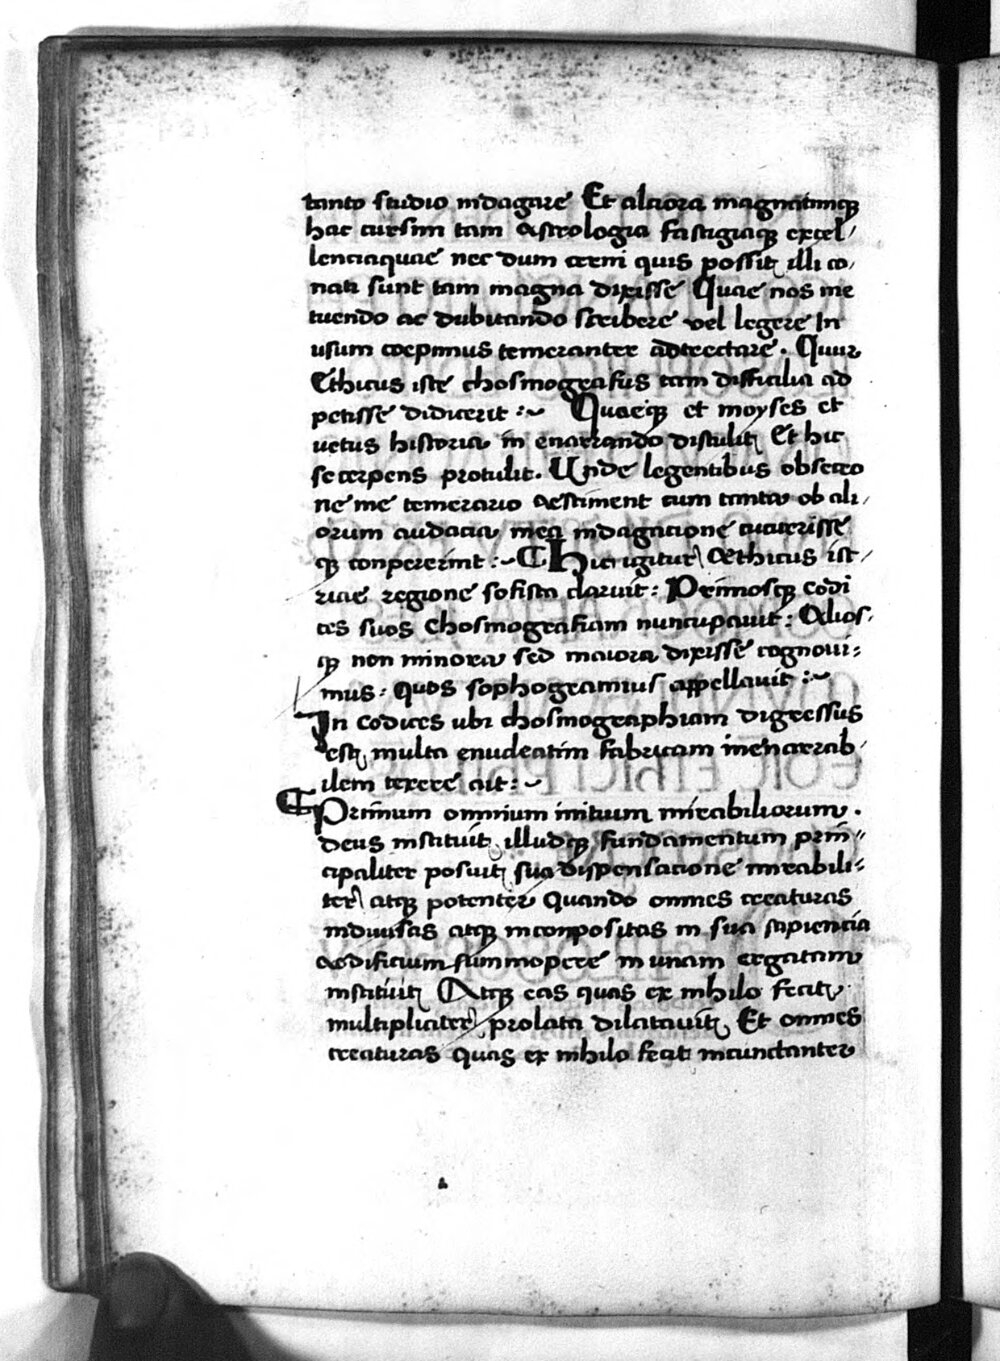 tanto studio indagare Et alciora magnatimq;
hac cursim tam astrologia fastigiaq; excel/
lenciaquae nec dum cerni quis possit illi co/
nati sunt tam magna dixisse Quae nos me
tuendo ac dubitando scribere vel legere In
usum coepimus temeranter adtrectare. Quur
Ethicus iste chosmografus tam difficilia ad
petisse didicerit :~ Quaeq; et moyses et
uetus historia in enarrando distulit Et hic
secerpens protulit. Unde legentibus obsecro
ne me temerario aestiment cum tanta ob ali/
orum audacia mea indagacione cucurrisse
q; conpererint :~ Hic igitur Aethicus ist/
riae regione sofista claruit : Primosq; codi
ces suos Chosmografiam nuncupauit : Alios/
q; non minora sed maiora dixisse cognoui:
mus : quos sophogramius appellauit :~
In codices ubi chosmographiam digressus
est multa enudeatim fabricam inenarrab/
ilem texere ait :~
Primum omnium initium mirabiliorum .
deus instituit illudq; fundamentum prin=
cipaliter posuit sua dispensacione mirabili:
ter atq; potenter quando omnes creaturas
indiuisas atq; inconpositas in sua sapiencia
aedificium summopere in unam ergatam
instituit Atq; eas quas ex nihilo fecit
multipliciter prolata dilatauit Et omnes
creaturas quas ex nihilo fecit incunctanter